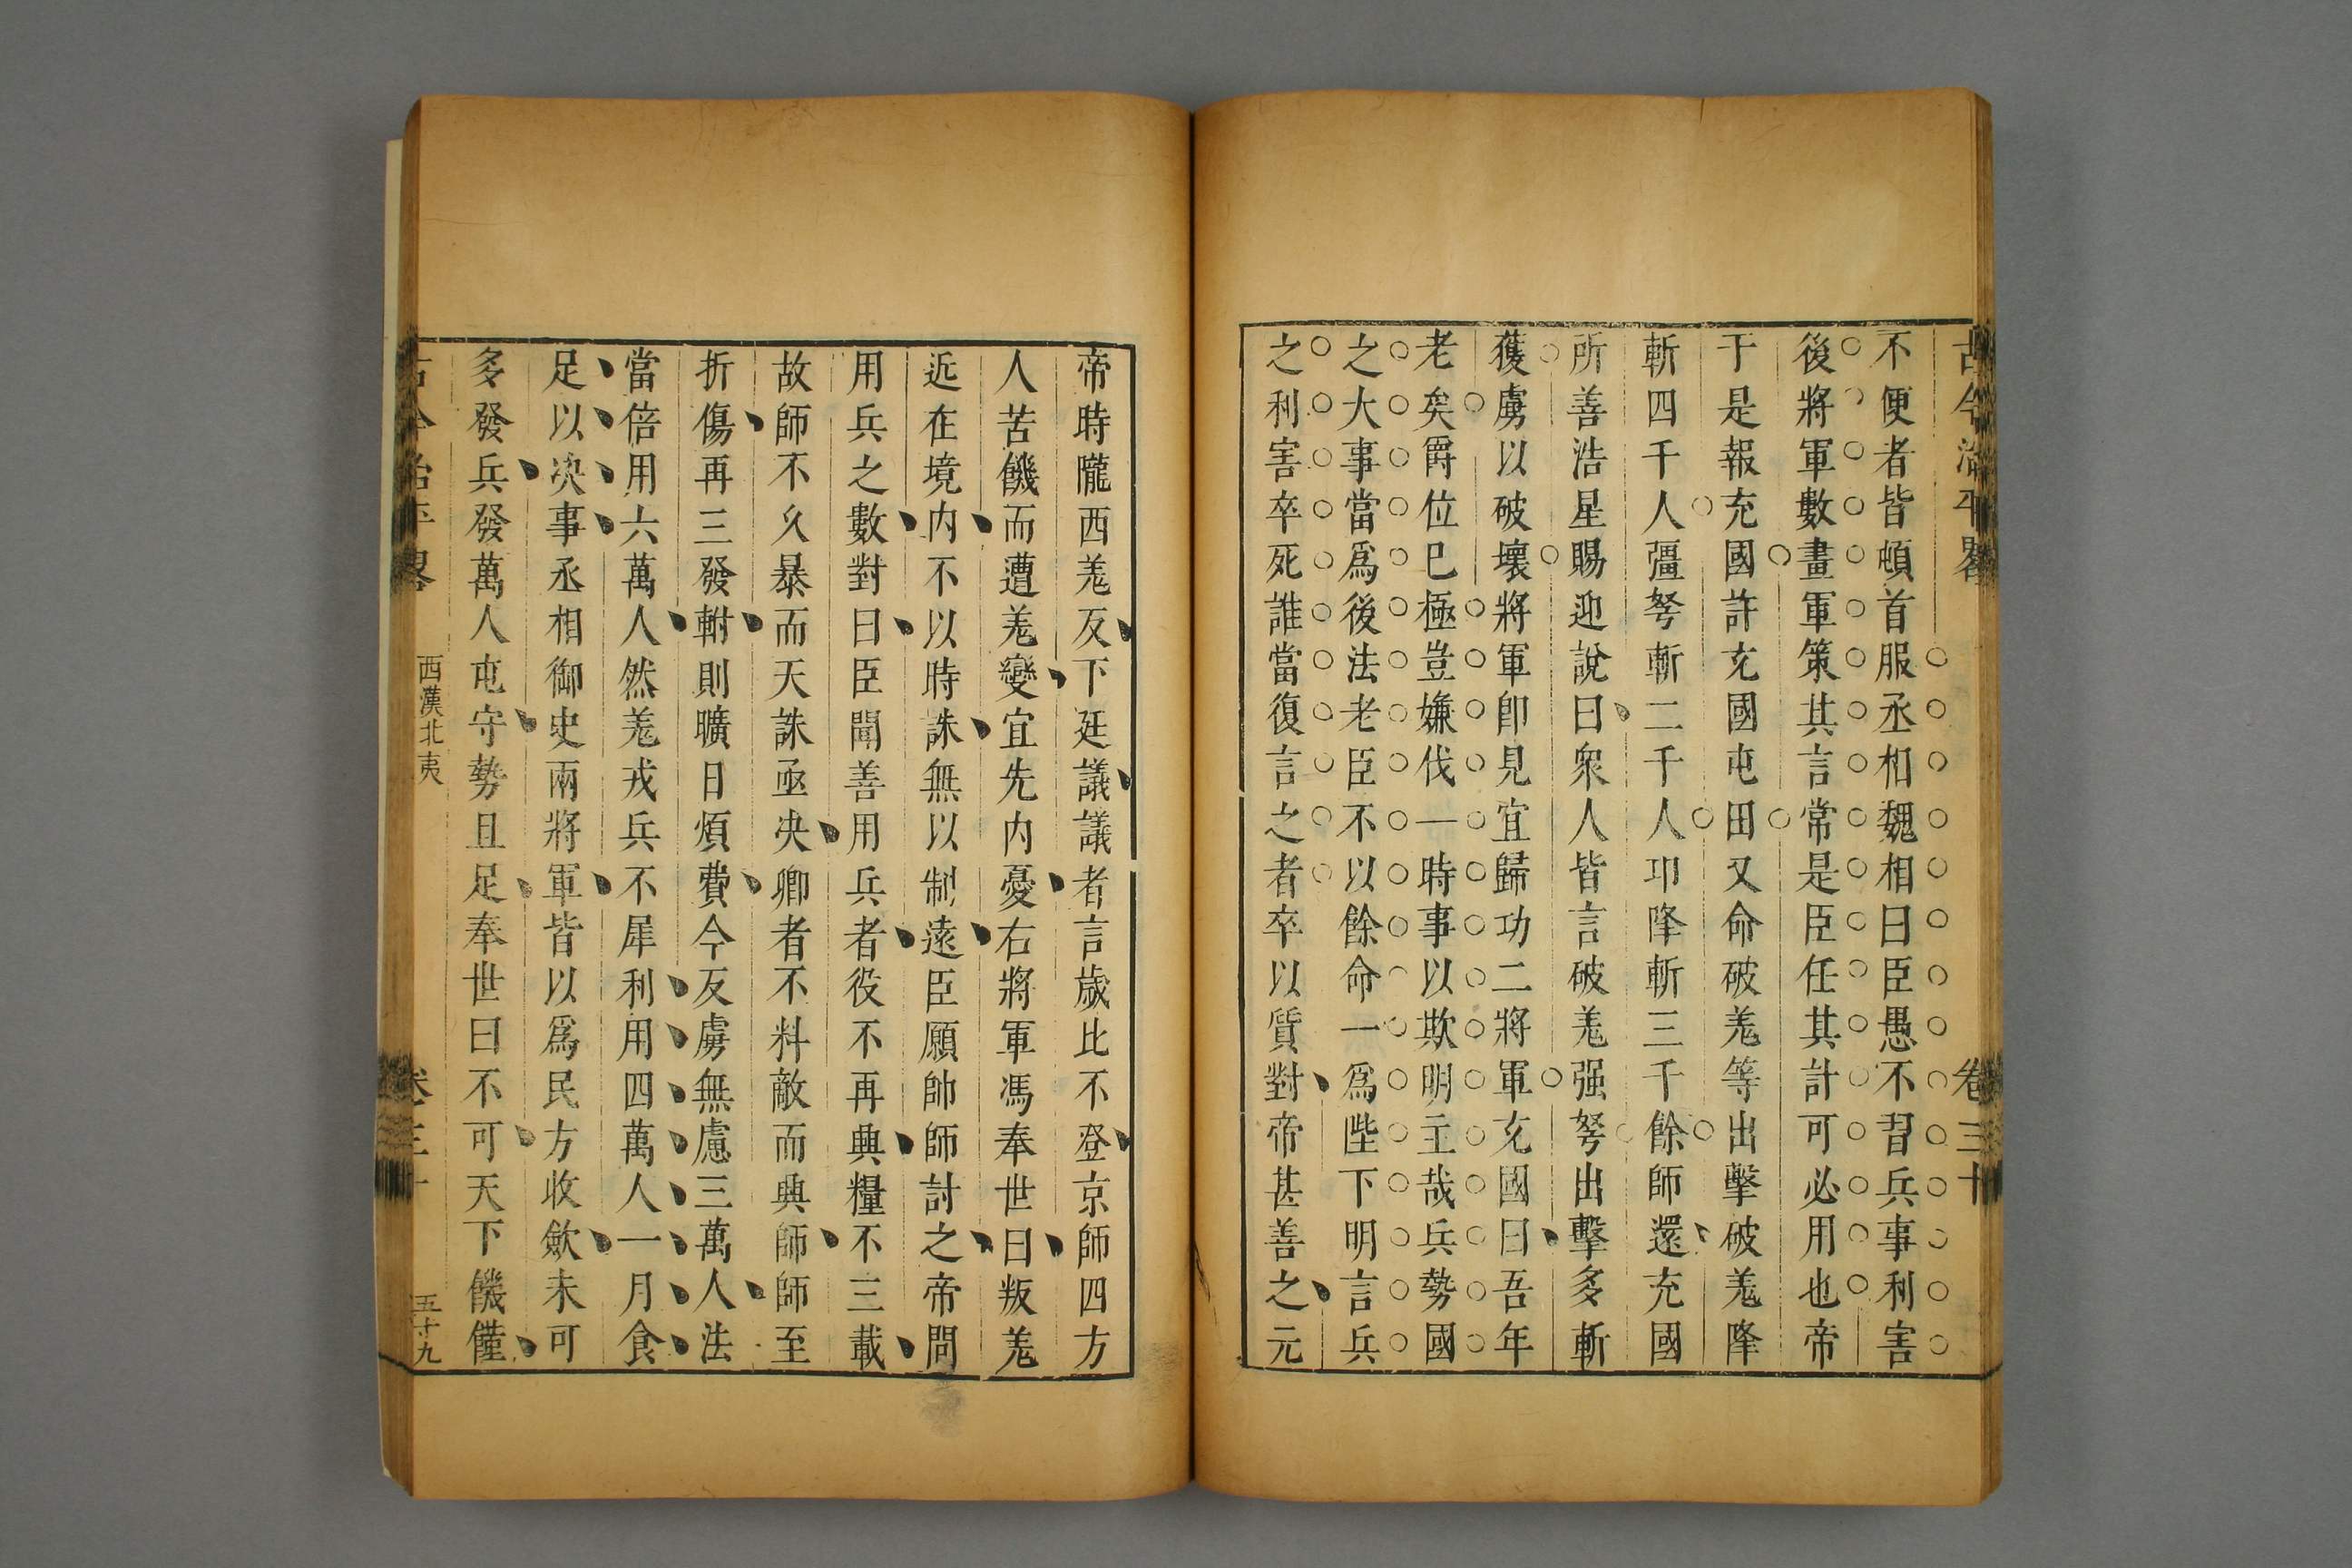 古今治平畧
卷三十
不便者皆頓首服丞相魏相曰臣愚不習兵事利害
後將軍數畫軍策其言常是臣任其計可必用也帝
于是報充國許充國屯田又命破羌等出擊破羌降
斬四千人彊弩斬二千人卭降斬三千餘師還充國
所善浩星賜迎說曰衆人皆言破羌强弩出擊多斬
獲虜以破壞將軍即見宜歸功二將軍充國曰吾年
老矣爵位已極豈嫌伐一時事以欺明主哉兵勢國
之大事當爲後法老臣不以餘命一爲陛下明言兵
之利害卒死誰當復言之者卒以質對帝甚善之元
帝時隴西羌反下廷議議者言歲比不登京師四方
人苦饑而遭羌變宜先内憂右將軍馮奉世曰叛羌
近在境内不以時誅無以制遠臣願帥師討之帝問
用兵之數對曰臣聞善用兵者役不再興糧不三載
故師不久暴而天誅亟决卿者不料敵而興師師至
折傷再三發軵則曠日煩費今反虜無慮三萬人法
當倍用六萬人然羌戎兵不犀利用四萬人一月食
足以决事丞相御史兩將軍皆以爲民方收歛未可
多發兵發萬人屯守勢且足奉世曰不可天下饑饉
古今治平畧
西漢北夷
卷三十
五十九